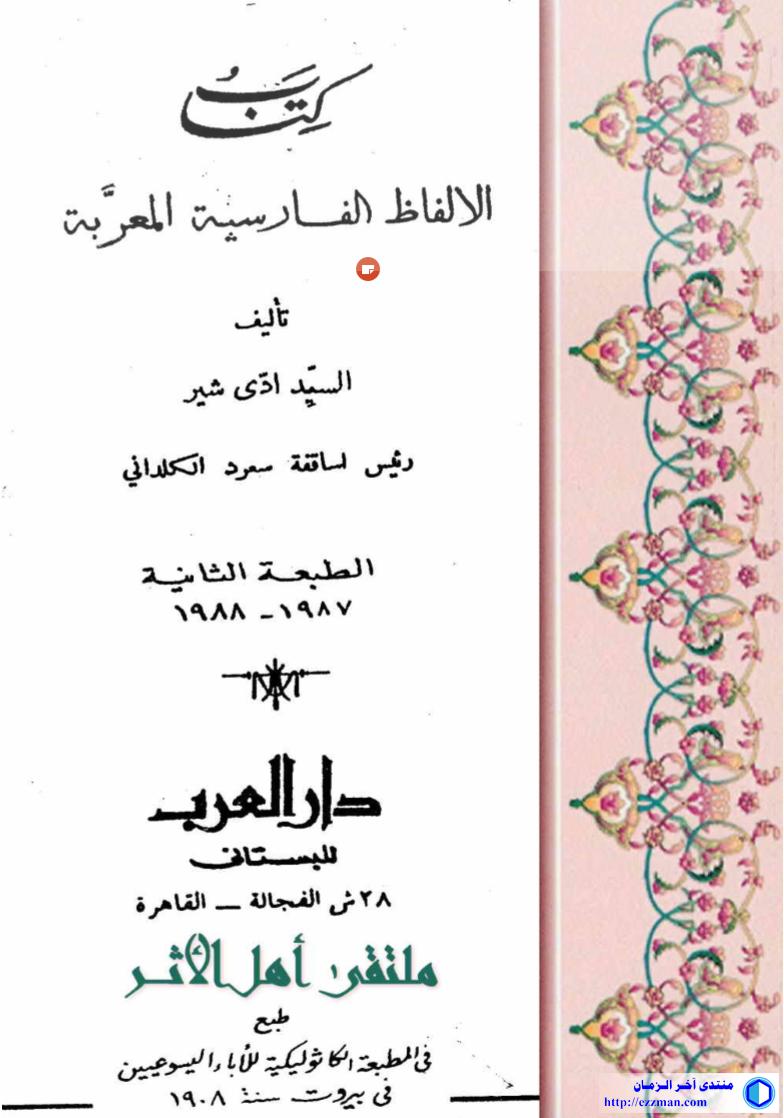 كِتَابُ
الالفاظ الفارسية المعرَّبة
تأليف
السيِّد ادّى شير
رئيس اساقفة سعرد الكلداني
الطبعة الثانية
١٩٨٧ - ١٩٨٨
دار العرب
للبستانى
٢٨ ش الفجالة ــ القاهرة
ملتقى أهل الأثر
طبع
فى المطبعة الكاثوليكية للأباء اليسوعيين
فى بيروت سنة ١٩٠٨
منتدى أخر الزمان
http://ezzman.com